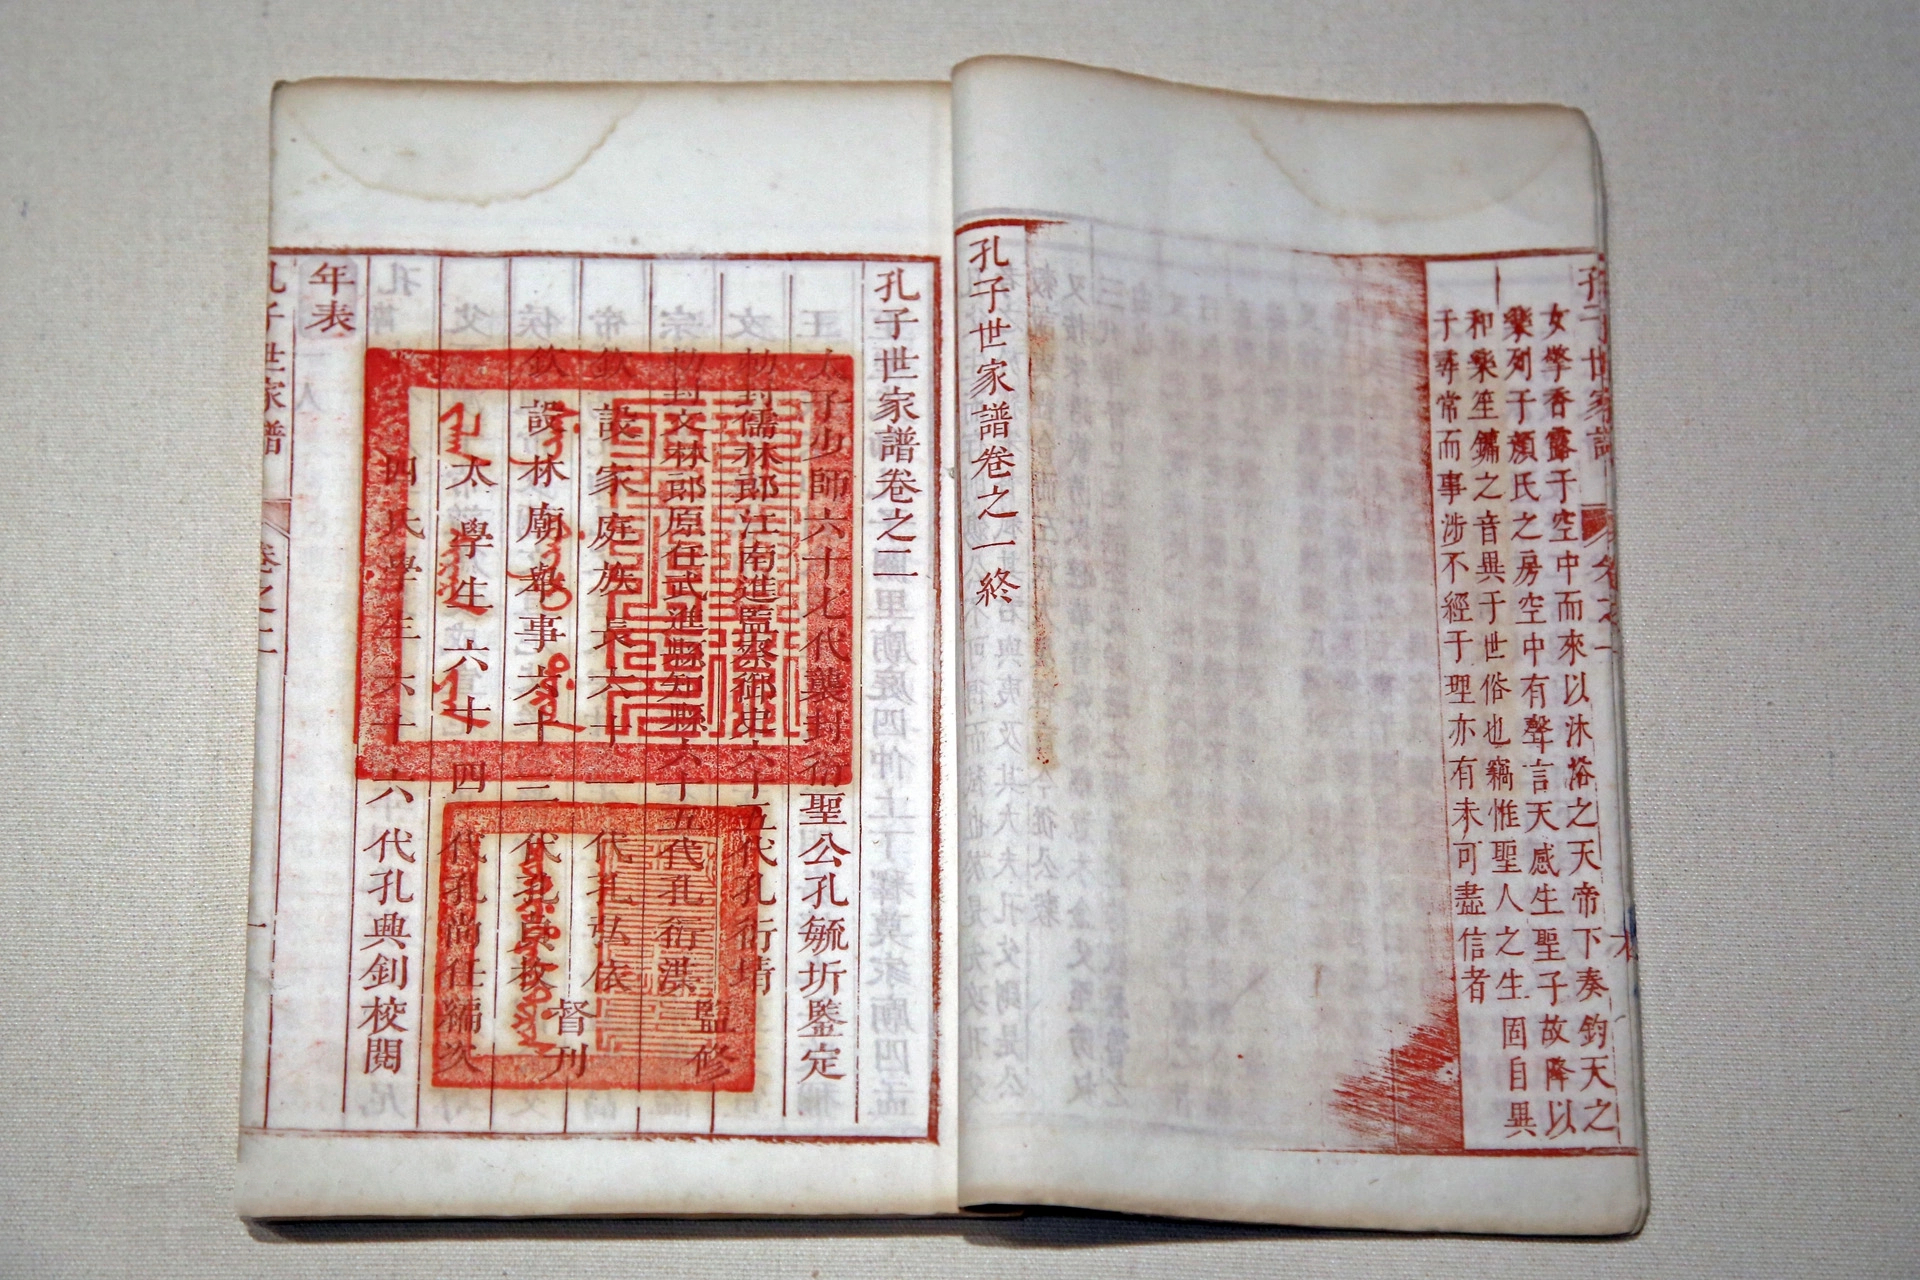 女擎香露于空中而來以沐浴之天帝下奏鈞天之
樂列于顏氏之房空中有聲言天感生聖子故降以
和樂笙鏞之音異于世俗也竊惟聖人之生固自異
于尋常而事涉不經于理亦有未可盡信者
孔子世家譜卷之一終
孔子世家譜卷之二
太子少師六十七代襲封衍聖公孔毓圻鑒定
勅封儒林郎江南道監察御史六十五代孔衍
勅封文林郎原任武進縣知縣六十五代孔衍洪
監修
欽設家庭族長六十一代孔弘依
欽設林廟舉事六十三代孔貞枚
督刊
太學生六十四代孔尚任編次
四氏學生六十六代孔興釗校閱
年表
孔子世家譜
卷之二
一